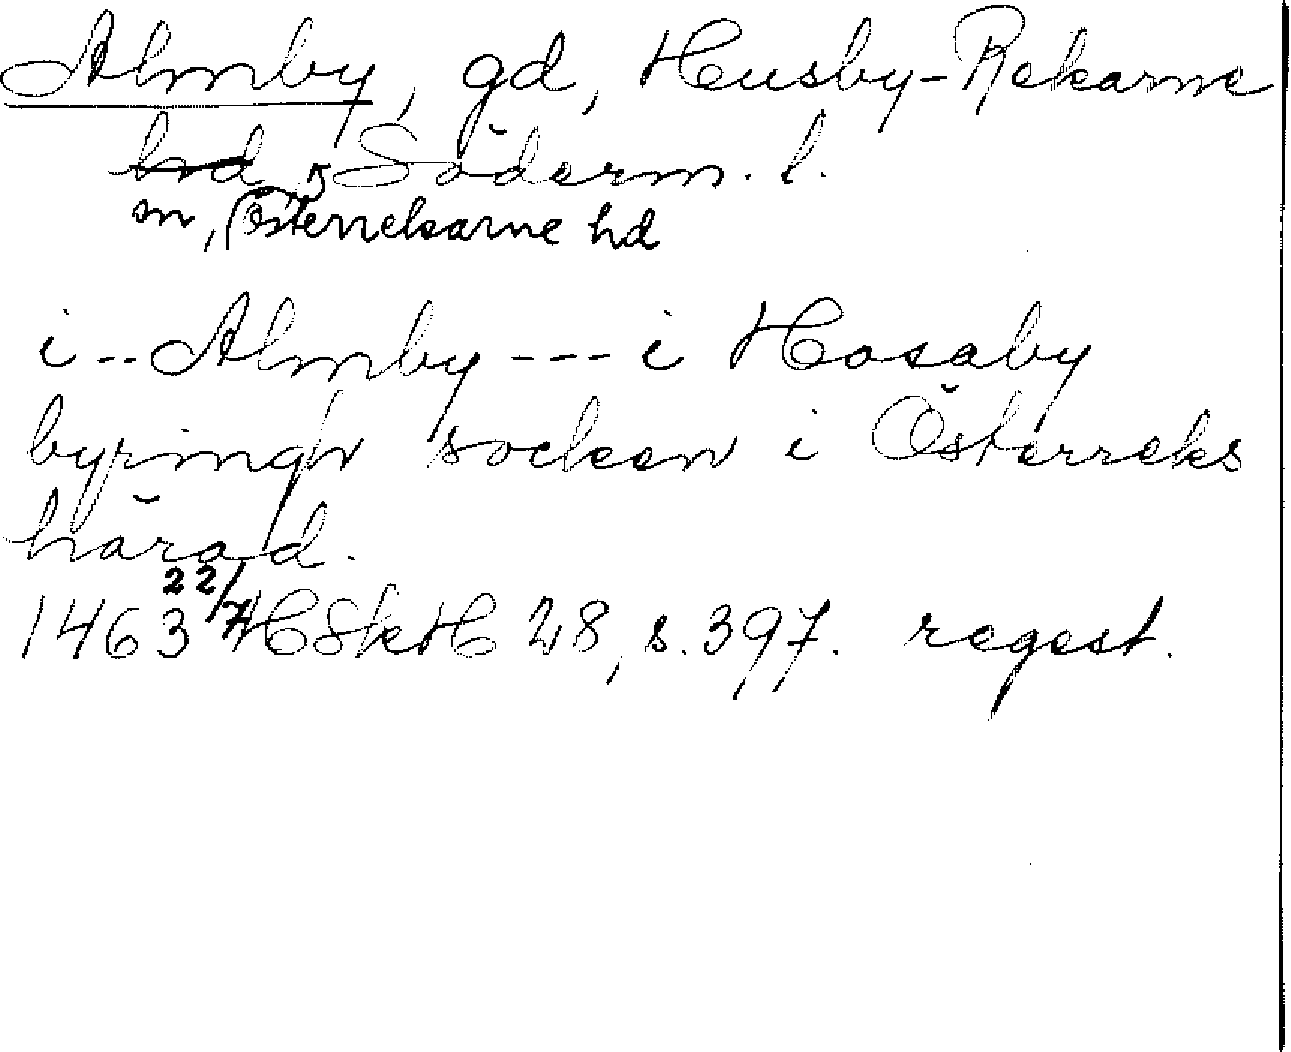 Almby, gd, Husby-Rekarne
hrd, Söderm. l.
sn, Österrekarne hd
i -- Almby --- i Hosaby
byringh socken i Österreks
härad.
1463 22/7 HSkH 28, s. 397. regest.